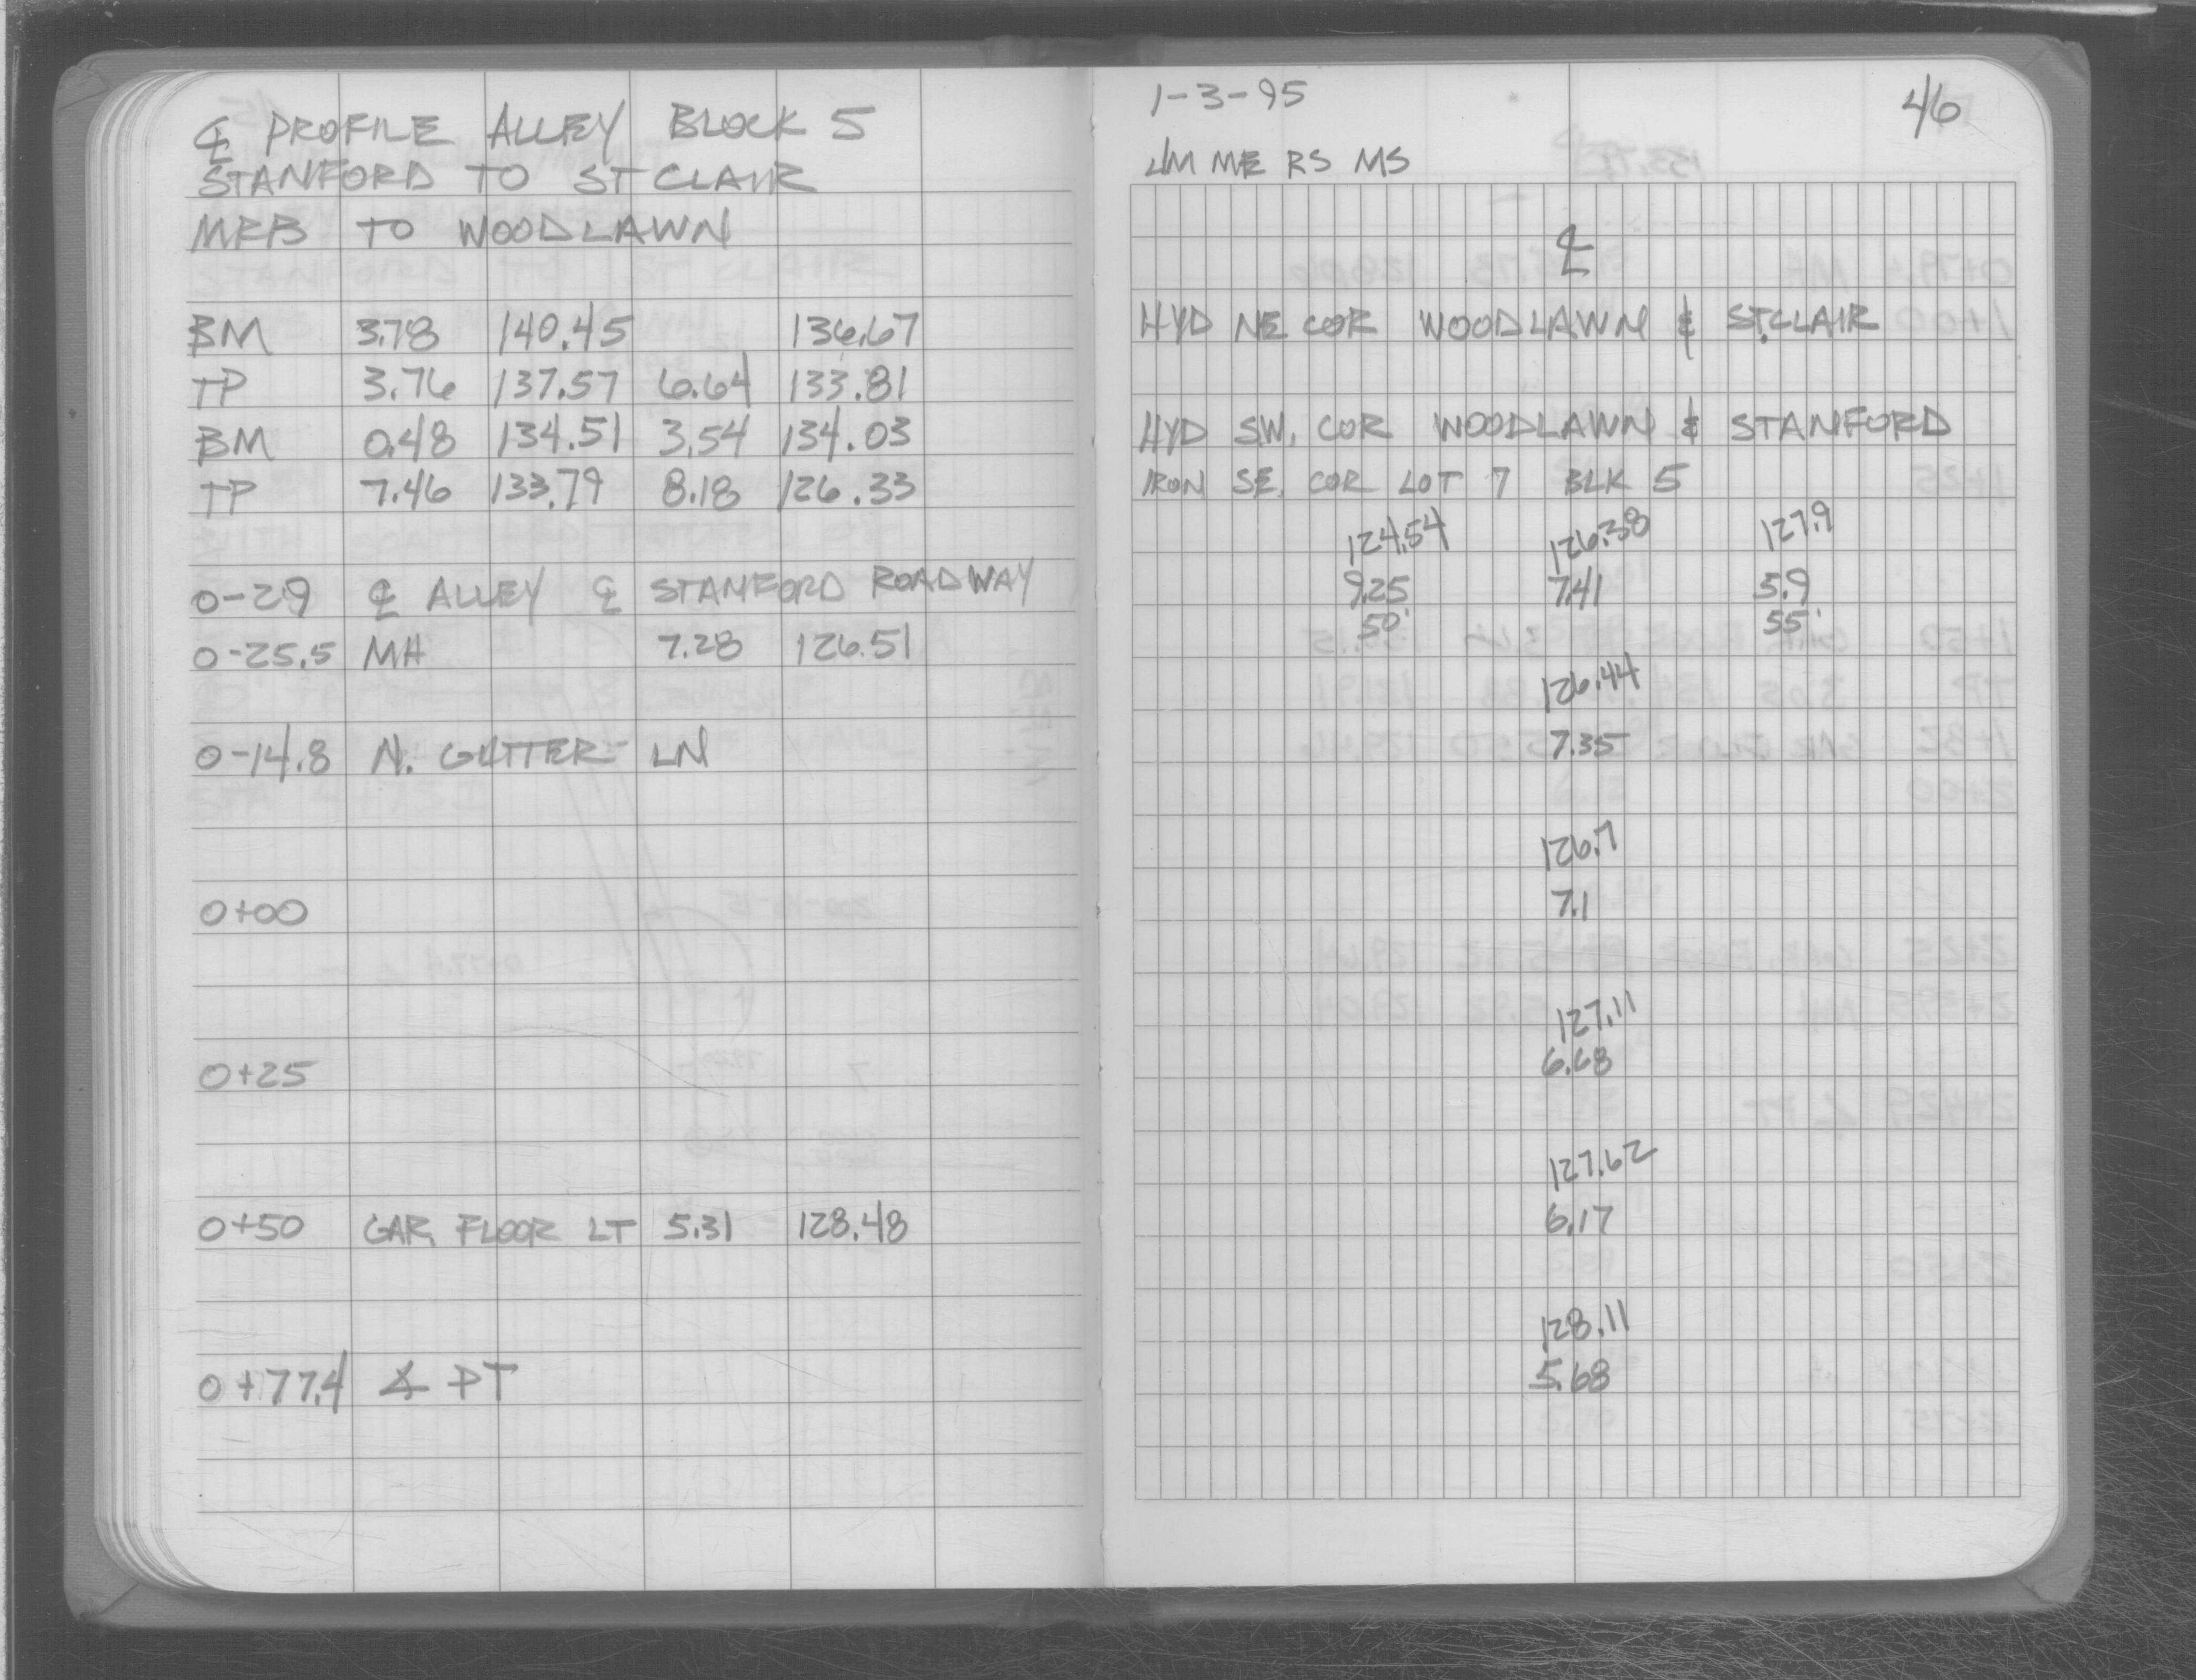 ℄ PROFILE ALLEY BLOCK 5
STANFORD TO ST CLAIR
MRB TO WOODLAWN
BM 3.78 140.45 136.67
TP 3.76 137.57 6.64 133.81
BM 0.48 134.51 3.54 134.03
TP 7.46 133.79 8.18 126.33
0-29 ℄ ALLEY ℄ STANFORD ROADWAY
0-25.5 MH 7.28 126.51
0-14.8 N. GUTTER LN
0+00
0+25
0+50 GAR. FLOOR LT 5.31 128.48
0+77.4 ∠ PT
1-3-95
46
JM ME RS MS
℄
HYD NE COR WOODLAWN & ST.CLAIR
HYD SW. COR WOODLAWN & STANFORD
IRON SE. COR LOT 7 BLK 5
124.54 126.38 127.9
9.25 7.41 5.9
50' 55'
126.44
7.35
126.7
7.1
127.11
6.68
127.62
6.17
128.11
5.68